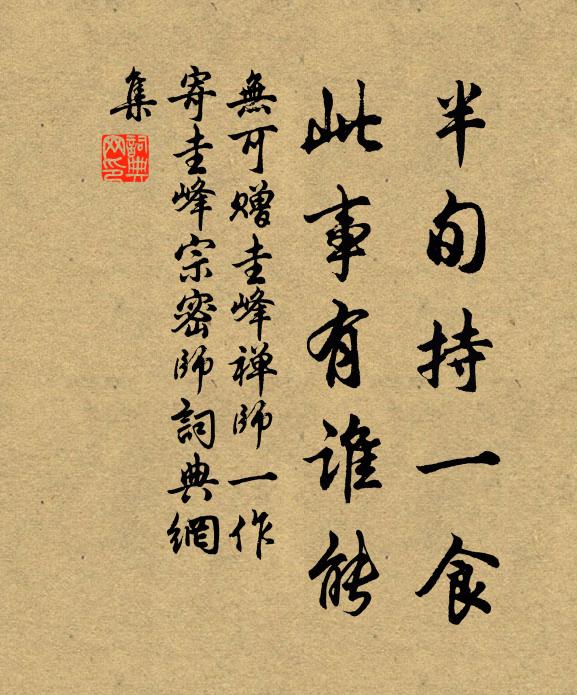 半旬持一食
此事有谁能
無可贈圭峰禅師一作
寄圭峰宗密師詞典網
集
詞典
网印